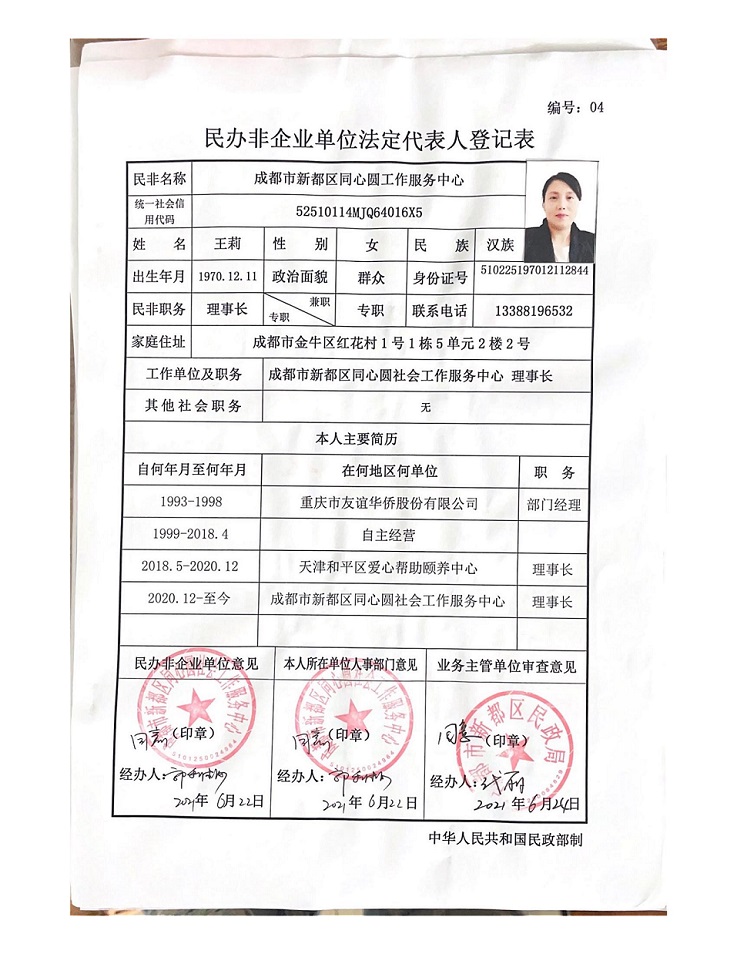 编号：04
民办非企业单位法定代表人登记表
民非名称 成都市新都区同心圆工作服务中心
统一社会信用代码 52510114MJQ64016X5
姓名 王莉 性别 女 民族 汉族
出生年月 1970.12.11 政治面貌 群众 身份证号 510225197012112844
民非职务 理事长 专职 兼职 专职 联系电话 13388196532
家庭住址 成都市金牛区红花村1号1栋5单元2楼2号
工作单位及职务 成都市新都区同心圆社会工作服务中心 理事长
其他社会职务 无
本人主要简历
自何年月至何年月 在何地区何单位 职务
1993-1998 重庆市友谊华侨股份有限公司 部门经理
1999-2018.4 自主经营
2018.5-2020.12 天津和平区爱心帮助颐养中心 理事长
2020.12-至今 成都市新都区同心圆社会工作服务中心 理事长
民办非企业单位意见 本人所在单位人事部门意见 业务主管单位审查意见
同意（印章） 同意（印章） 同意（印章）
经办人： 经办人： 经办人：
2021年6月22日 2021年6月22日 2021年6月24日
中华人民共和国民政部制